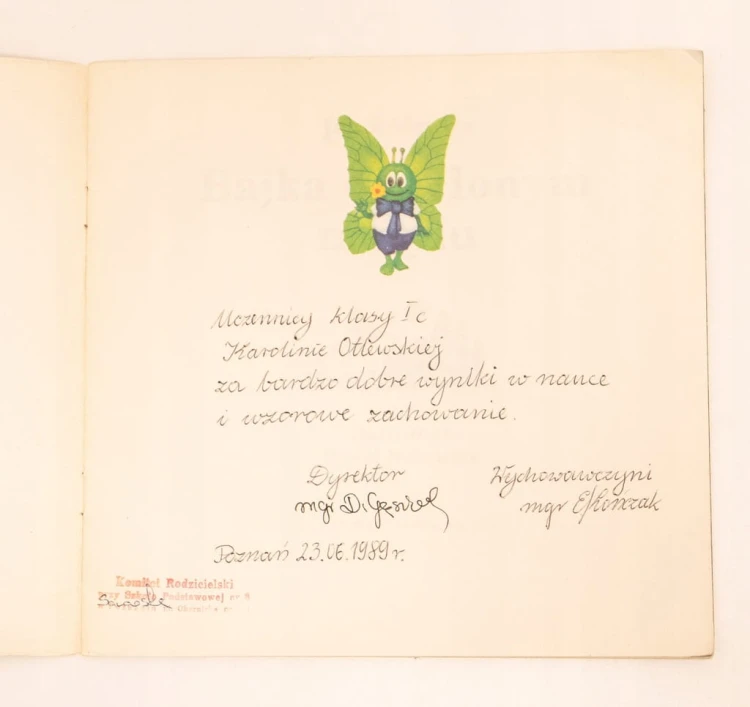 Uczennicy klasy Ic
Karolinie Otlewskiej
za bardzo dobre wyniki w nauce
i wzorowe zachowanie.
Dyrektor
mgr D.
Wychowawczyni
mgr
Poznań 23.06.1989 r.
Komitet Rodzicielski
przy Szkole Podstawowej nr